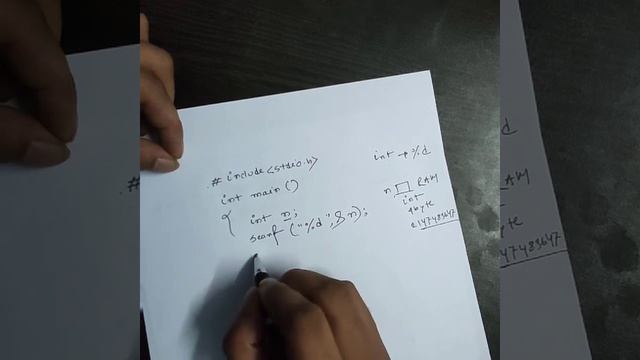 # include<stdio.h>
int main()
{ int n;
scanf ("%d",&n);
int → %d
n RAM
int
4byte
2147483647